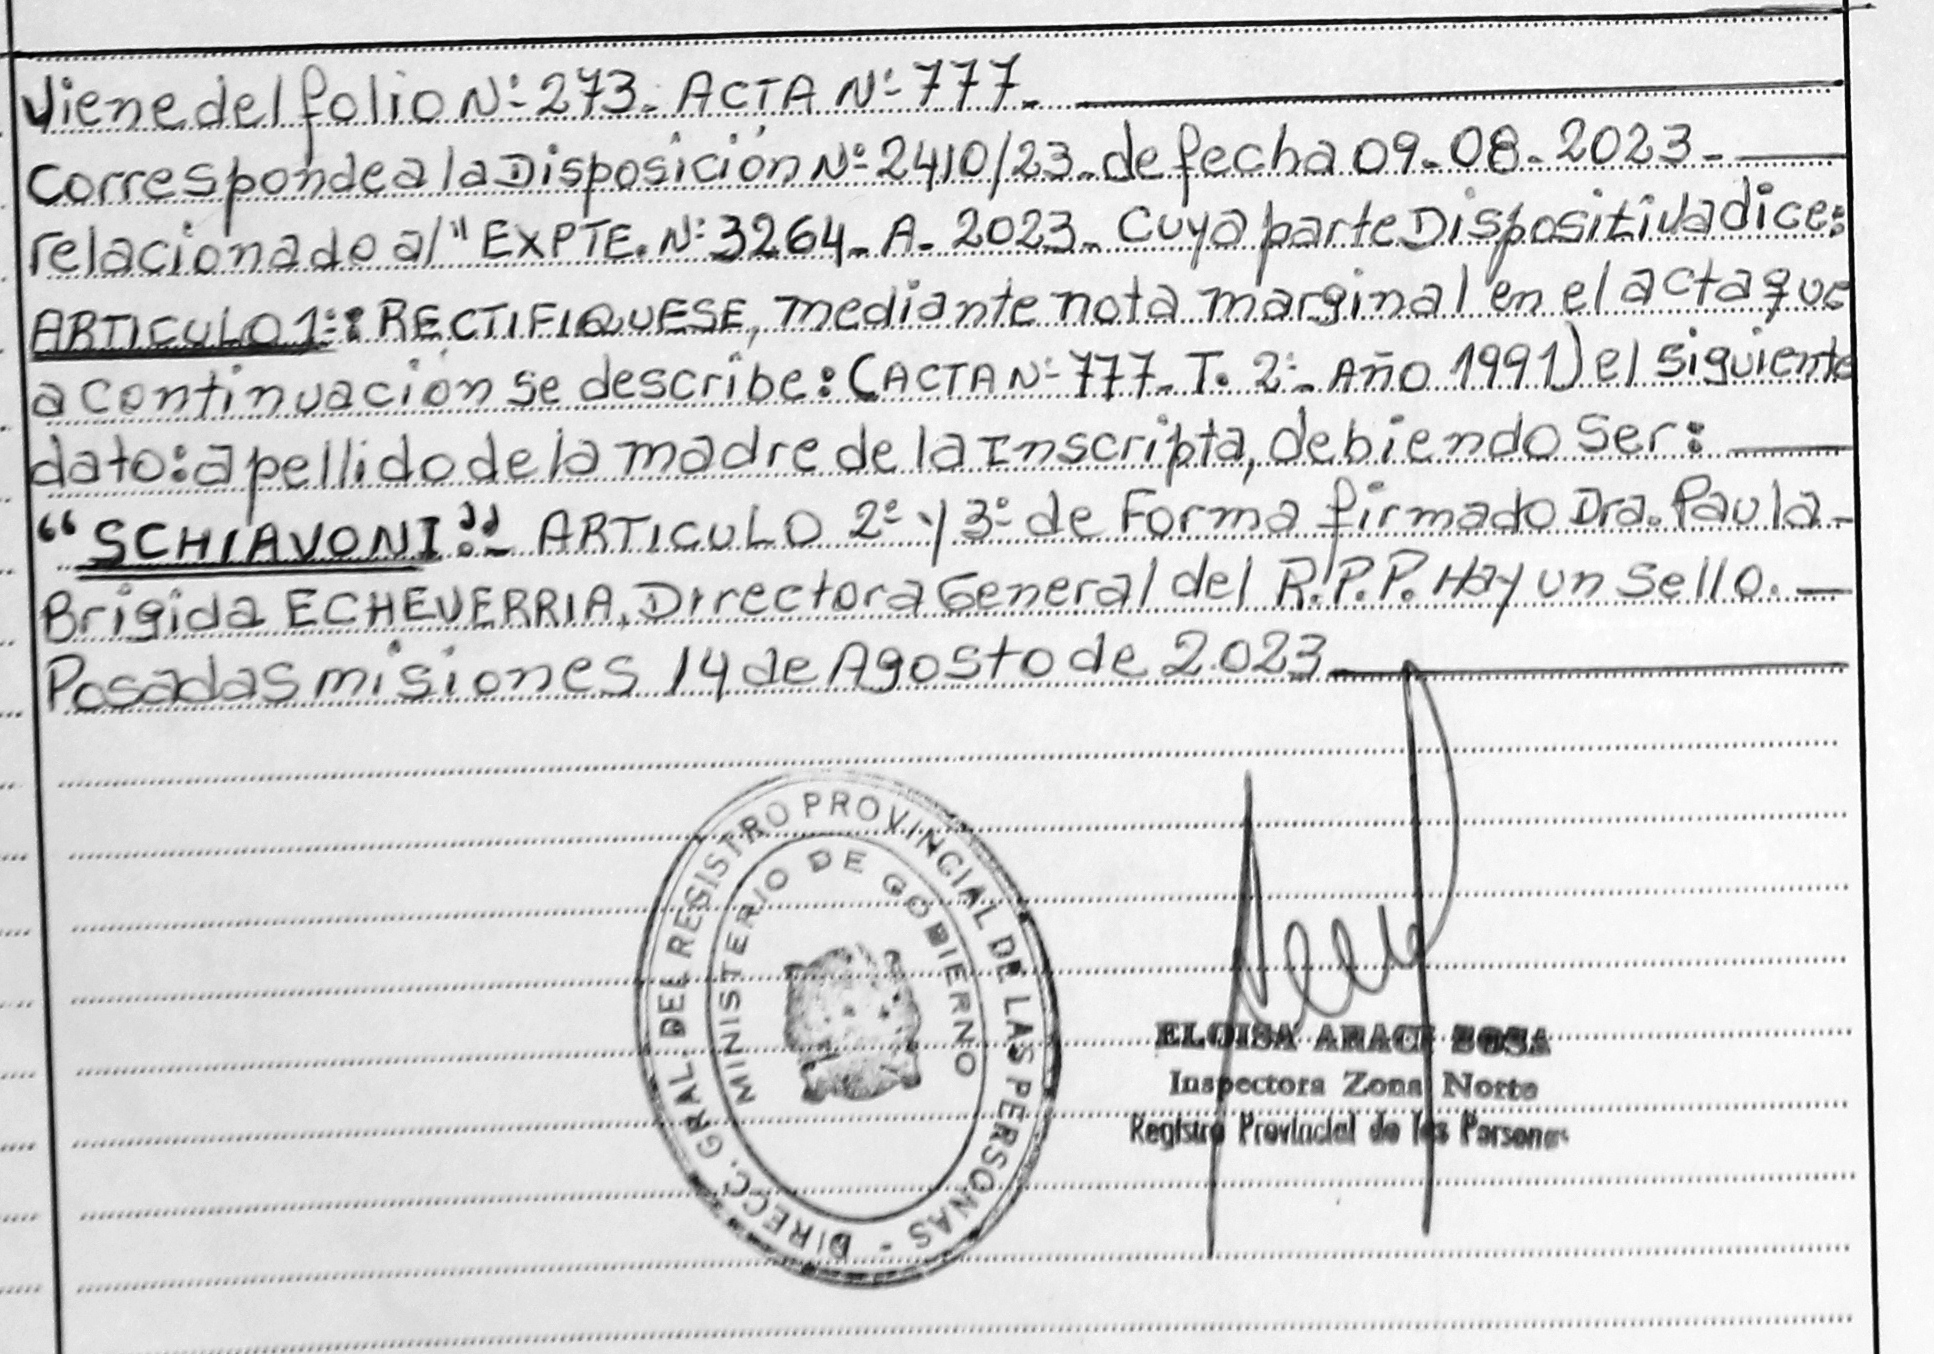 Viene del folio Nº 273. ACTA Nº 777.
Corresponde a la Disposición Nº 2410/23. de fecha 09-08-2023.
relacionado al "EXPTE. Nº 3264-A-2023. Cuya parte Dispositiva dice:
ARTICULO 1º: RECTIFIQUESE, mediante nota marginal en el acta que
a continuación se describe: (ACTA Nº 777. T. 2º. Año 1991) el siguiente
dato: apellido de la madre de la Inscripta, debiendo ser:
"SCHIAVONI". ARTICULO 2º y 3º de Forma firmado Dra. Paula
Brigida ECHEVERRIA, Directora General del R.P.P. Hay un sello.
Posadas misiones 14 de Agosto de 2023
DIRECC. GRAL. DEL REGISTRO PROVINCIAL DE LAS PERSONAS -
MINISTERIO DE GOBIERNO
ELOISA ARACI SOSA
Inspectora Zona Norte
Registro Provincial de las Personas